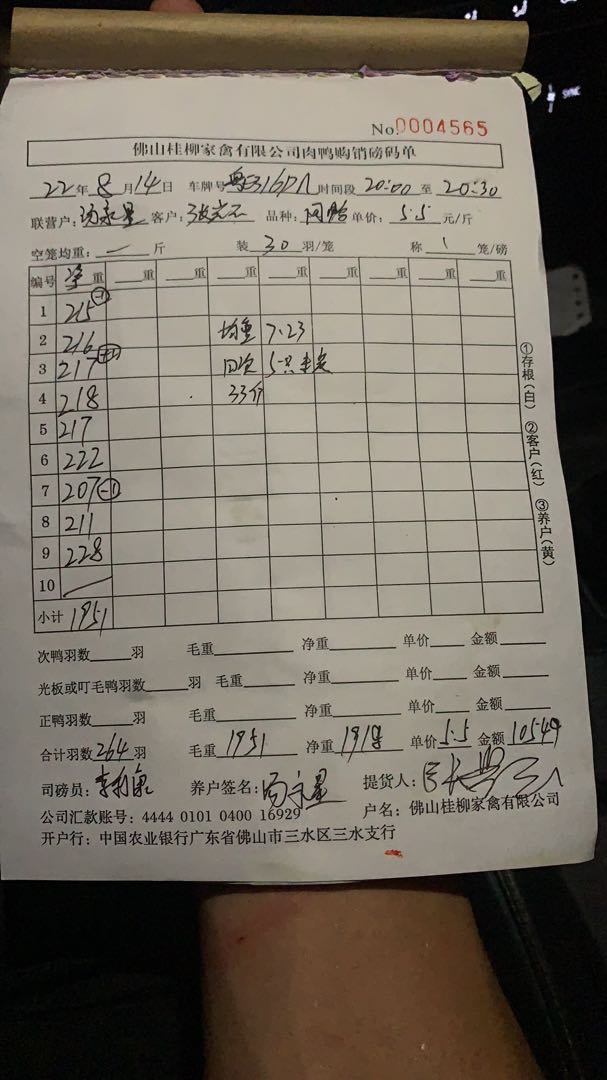 No.0004565
佛山桂柳家禽有限公司肉鸭购销磅码单
22年8月14日 车牌号 时间段20:00至20:30
联营户: 客户: 品种: 单价:5.5元/斤
空笼均重:一斤 装30羽/笼 称1笼/磅
编号 净重 重 重 重 重 重 重 重
1 215
2 216 均重 7.23
3 217 回次 5只
4 218 33斤
5 217
6 222
7 207 (-1)
8 211
9 228
10
小计 1951
次鸭羽数 羽 毛重 净重 单价 金额
光板或叮毛鸭羽数 羽 毛重 净重 单价 金额
正鸭羽数 羽 毛重 净重 单价 金额
合计羽数264羽 毛重1951 净重1918 单价5.5 金额10549
司磅员: 养户签名: 提货人:
公司汇款账号: 4444 0101 0400 16929 户名: 佛山桂柳家禽有限公司
开户行: 中国农业银行广东省佛山市三水区三水支行
①存根(白) ②客户(红) ③养户(黄)